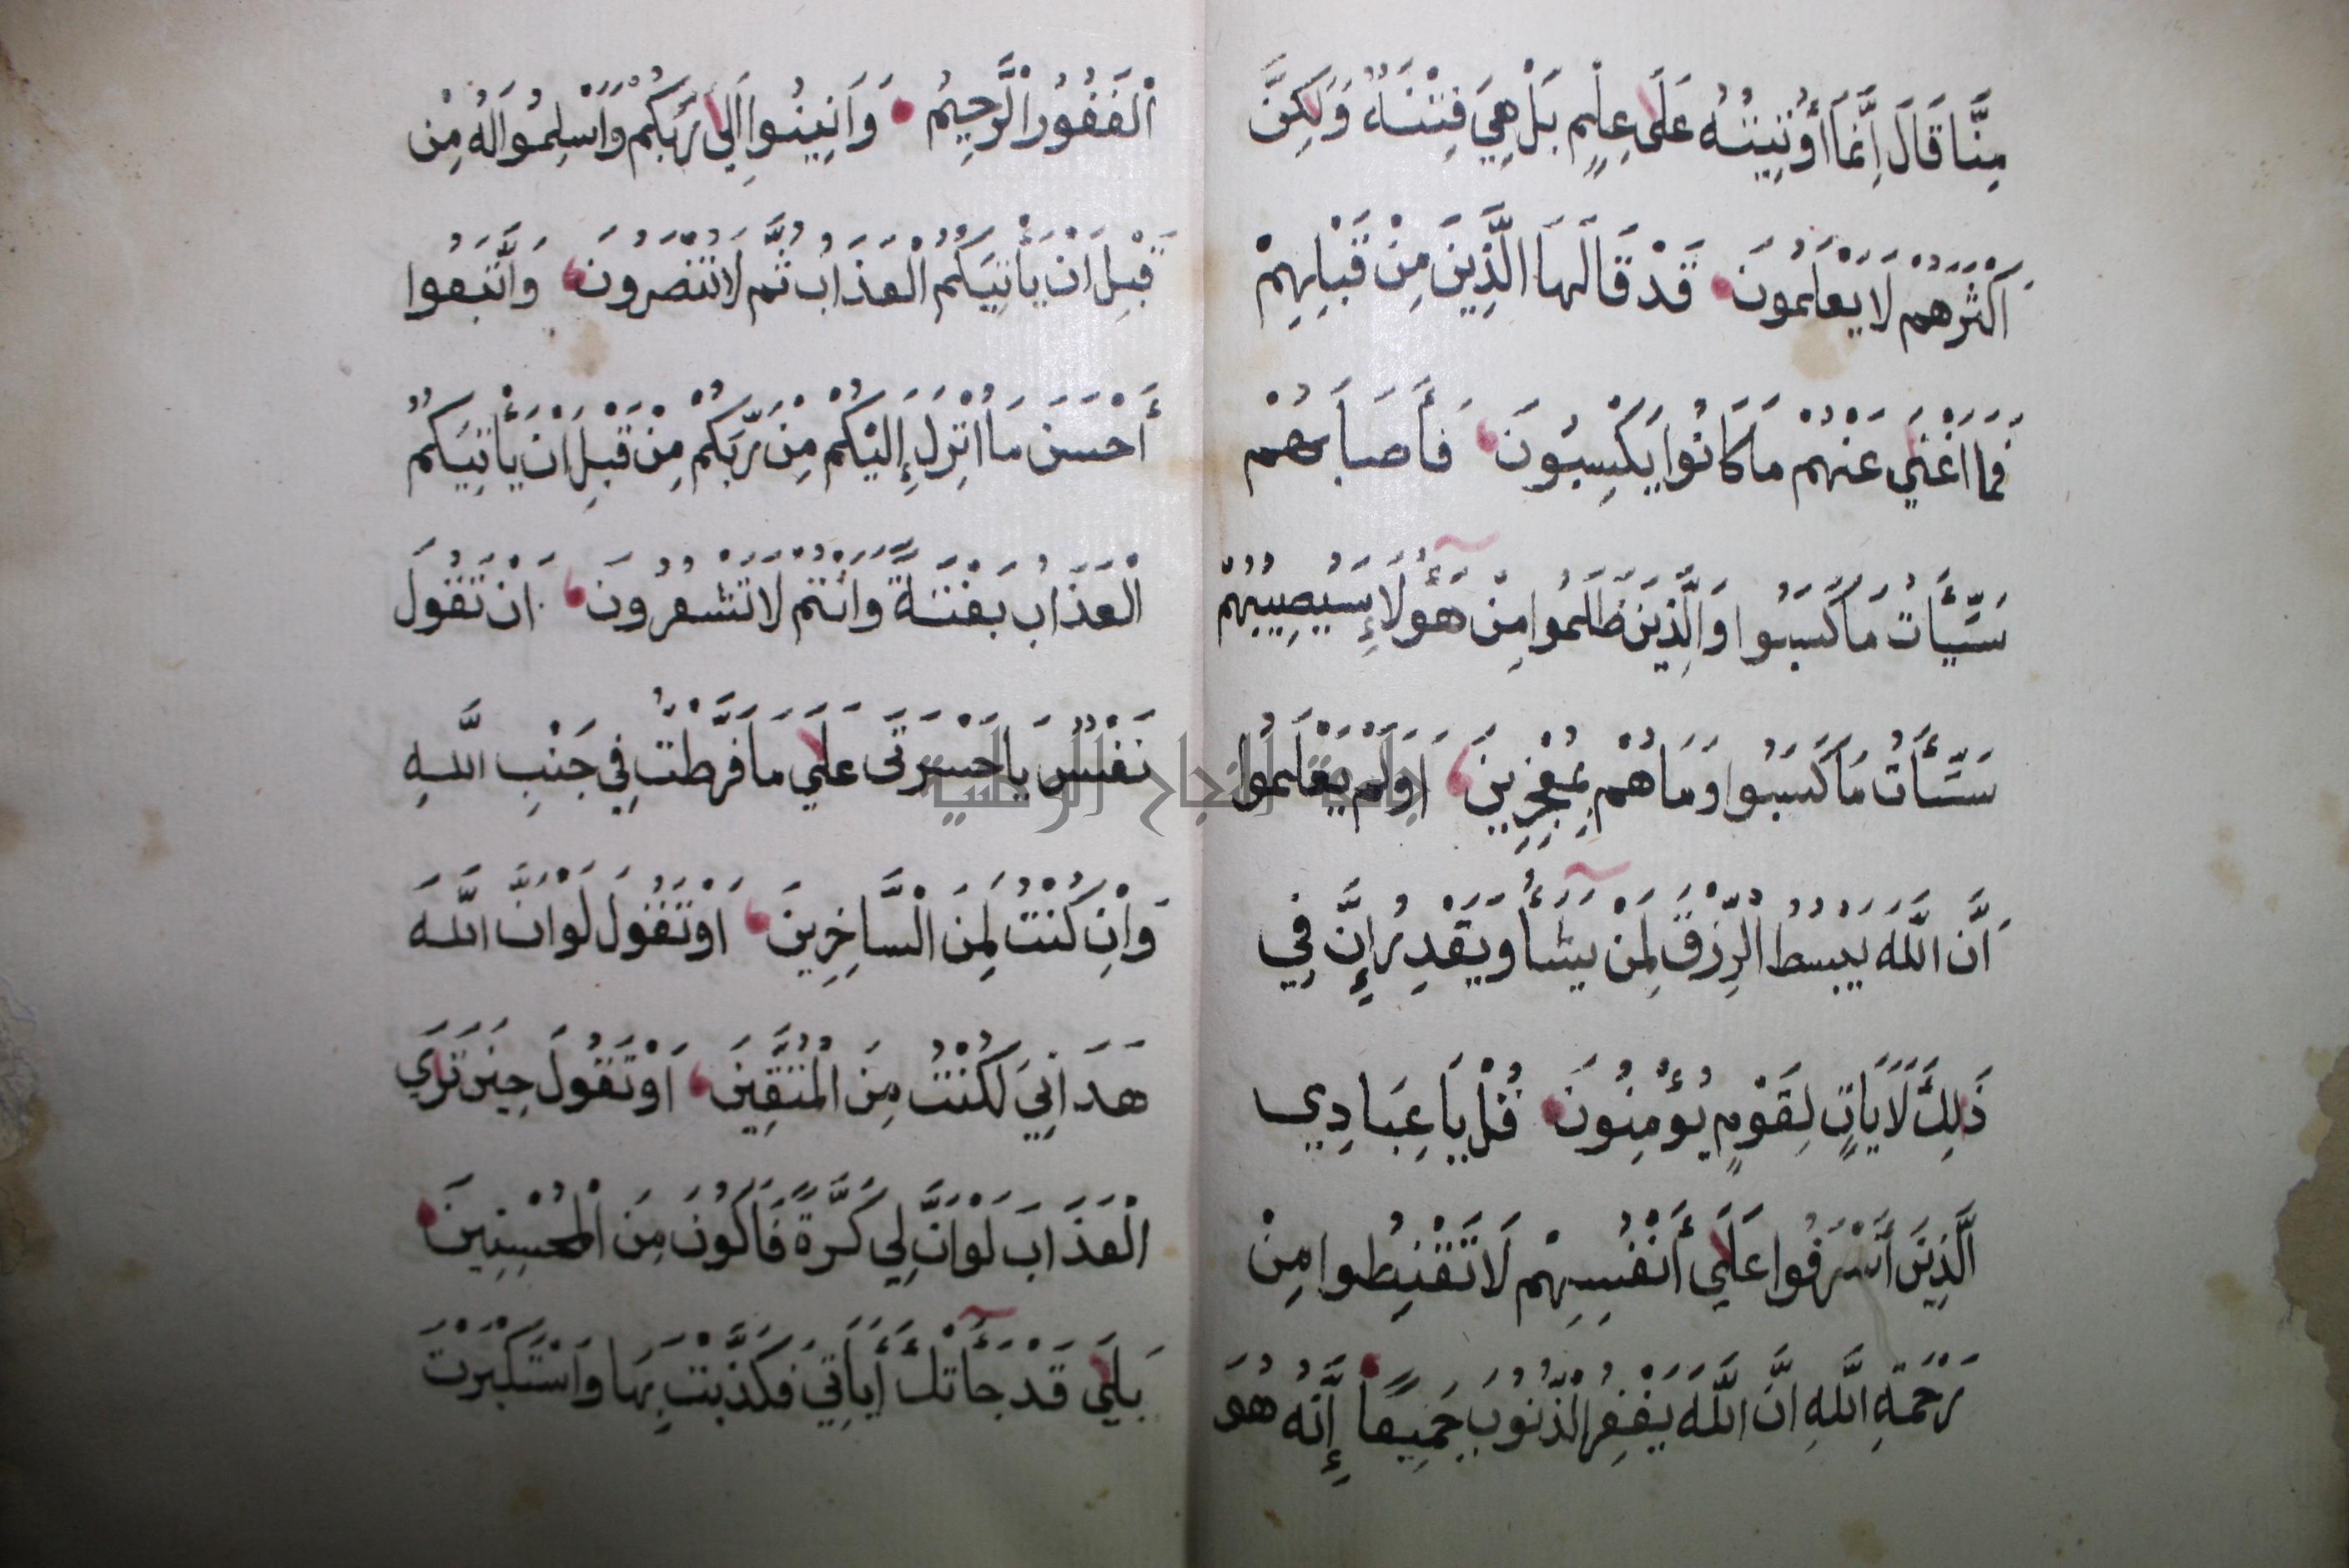 مِنَّا قَالَ اِنَّمَا أُوتِيتُهُ عَلَى عِلْمٍ بَلْ هِيَ فِتْنَةٌ وَلَكِنَّ
اَكْثَرَهُمْ لَا يَعْلَمُونَ قَدْ قَالَهَا الَّذِينَ مِنْ قَبْلِهِمْ
فَمَا اَغْنَي عَنْهُمْ مَا كَانُوا يَكْسِبُونَ فَأَصَابَهُمْ
سَيِّـَٔاتُ مَا كَسَبُوا وَالَّذِينَ ظَلَمُوا مِنْ هَؤُلَاءِ سَيُصِيبُهُمْ
سَيِّـَٔاتُ مَا كَسَبُوا وَمَا هُمْ بِمُعْجِزِينَ اَوَلَمْ يَعْلَمُوا
اَنَّ اللَّهَ يَبْسُطُ الْرِّزْقَ لِمَنْ يَشَأُ وَيَقْدِرُ إِنَّ فِي
ذَلِكَ لَأَيَاتٍ لِقَوْمٍ يُؤْمِنُونَ قُلْ يَا عِبَادِي
الَّذِينَ أَسْرَفُوا عَلَي أَنْفُسِهِمْ لَا تَقْنِطُوا مِنْ
رَحْمَةِ اللَّهِ اِنَّ اللَّهَ يَغْفِرُ الْذُّنُوبَ جَمِيعًا إِنَّهُ هُوَ
اْلغَفُوُر اْلرَّحِيمُ وَاَنِيبُوا اِلَي رَبِّكُمْ وَاَسْلِمُوا لَهُ مِنْ
قَبْلِ اَنْ يَأْتِيَكُمُ الْعَذَابُ ثُمَّ لَا تُنْصَرُونَ وَاتَّبَعُوا
أَحْسَنَ مَا اُنْزِلَ إِلَيْكُمْ مِنْ رَبِّكُمْ مِنْ قَبْلِ اَنْ يَأْتِيَكُمُ
الْعَذَابُ بَغْتَةً وَاَنْتُمْ لَا تَشْعُرُونَ اَنْ تَقُولَ
نَفْسٌ يَا حَسْرَتَى عَلَي مَا فَرَّطْتُ فِي جَنْبِ اللَّهِ
وَاِنْ كُنْتُ لَمِنَ الْسَّاخِرِينَ اَوْ تَقُولَ لَوْ اَنَّ اللَّهَ
هَدَانِي لَكُنْتُ مِنَ الْمُتَّقِينَ اَوْ تَقُولَ حِينَ تَرَي
الْعَذَابَ لَوْ اَنَّ لِي كَرَّةً فَاَكُونَ مِنَ الْمُحْسِنِينَ
بَلَي قَدْ جَأَتْكَ أَيَاتِي فَكَذَّبْتَ بِهَا وَاسْتَكْبَرْتَ
جامعة النجاح الوطنية